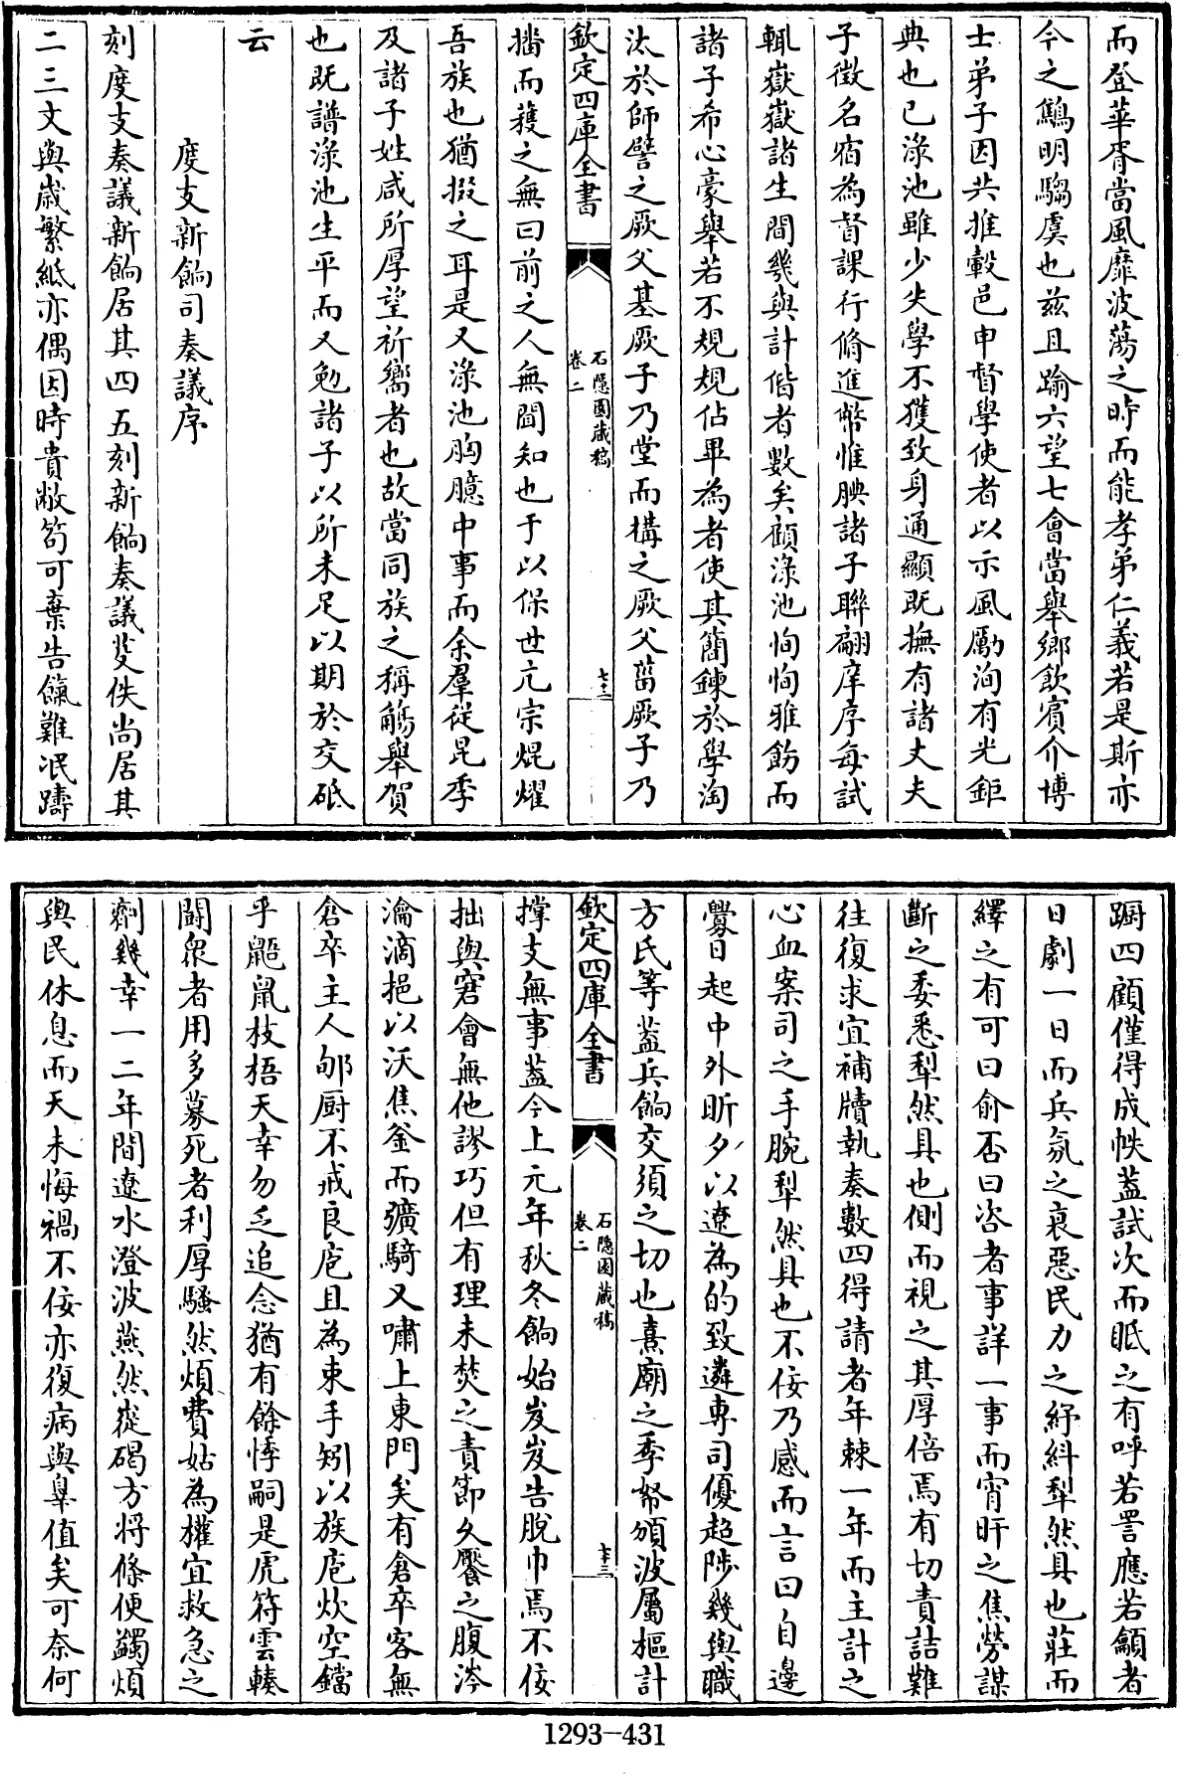 而登華胥當風靡波蕩之時而能孝弟仁義若是斯亦
今之鷦明騶虞也兹且踰六望七會當舉鄉飲賓介博
士弟子因共推轂邑申督學使者以示風勵洵有光鉅
典也已淥池雖少失學不獲致身通顯既撫有諸丈夫
子徵名宿為督課行脩進幣惟腆諸子聯翩庠序每試
輒嶽嶽諸生間幾與計偕者數矣顧淥池恂恂雅飭而
諸子希心豪舉若不規規佔畢為者使其簡鍊於學淘
汰於師譬之厥父基厥子乃堂而構之厥父菑厥子乃
欽定四庫全書
石隱園藏稿
卷二
七十二
播而穫之無曰前之人無聞知也于以保世亢宗焜燿
吾族也猶掇之耳是又淥池胸臆中事而余羣從昆季
及諸子姓咸所厚望祈嚮者也故當同族之稱觴舉賀
也既譜淥池生平而又勉諸子以所未足以期於交砥
云
度支新餉司奏議序
刻度支奏議新餉居其四五刻新餉奏議芟佚尚居其
二三文與歲繁紙亦偶因時貴敝笱可棄告餼難泯躊
蹰四顧僅得成帙葢試次而眂之有呼若詈應若籲者
日劇一日而兵氛之裒惡民力之紓糾犁然具也莊而
繹之有可曰俞否曰咨者事詳一事而宵旰之焦勞謀
斷之委悉犁然具也側而視之其厚倍焉有切責詰難
往復求宜補牘執奏數四得請者年棘一年而主計之
心血案司之手腕犁然具也不佞乃感而言曰自邊
釁日起中外昕夕以遼為的致遴專司優超陟幾與職
方氏等葢兵餉交須之切也熹廟之季帑頒波屬樞計
欽定四庫全書
石隱園藏稿
卷二
七十三
撑支無事葢今上元年秋冬餉始岌岌告脫巾焉不佞
拙與窘會無他謬巧但有理未焚之責節久饜之腹涔
瀹滴挹以沃焦釜而獷騎又嘯上東門矣有倉卒客無
倉卒主人郇厨不戒良庖且為束手矧以族庖炊空鐺
乎鼯鼠枝梧天幸勿乏追念猶有餘悸嗣是虎符雲輳
鬭衆者用多募死者利厚騷然煩費姑為權宜救急之
劑幾幸一二年間遼水澄波燕然蹤碣方將條便蠲煩
與民休息而天未悔禍不佞亦復病與辠值矣可奈何
1293-431